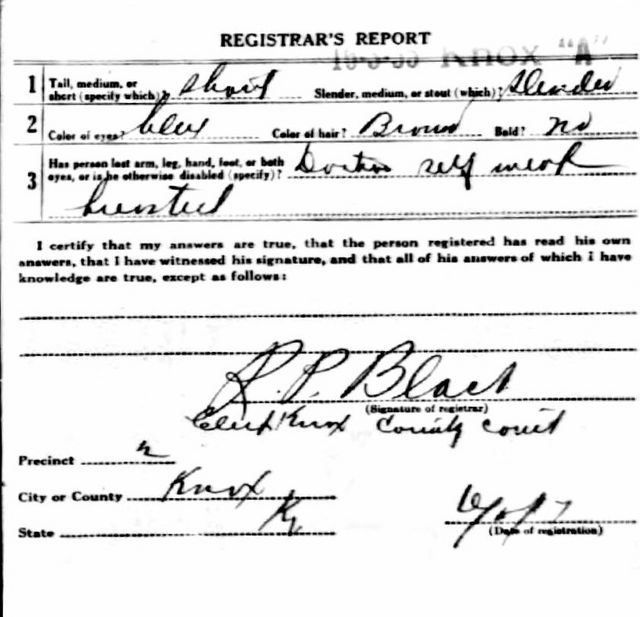 REGISTRAR'S REPORT
KNOX "A"
1 Tall, medium, or short (specify which)? short Slender, medium, or stout (which)? Slender
2 Color of eyes? blue Color of hair? Brown Bald? no
3 Has person lost arm, leg, hand, foot, or both
eyes, or is he otherwise disabled (specify)? self weak
breasted
I certify that my answers are true, that the person registered has read his own
answers, that I have witnessed his signature, and that all of his answers of which I have
knowledge are true, except as follows:
R. P. Black
(Signature of registrar)
Clerk Knox County Court
Precinct
City or County Knox
State Ky
(Date of registration)